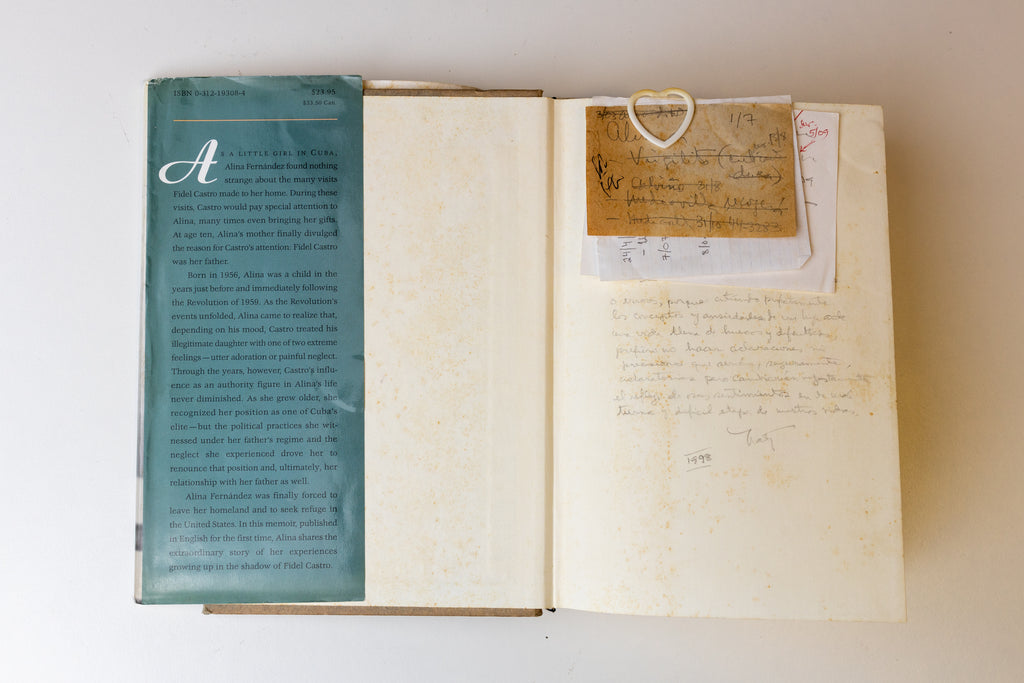 ISBN 0-312-19308-4 $23.95
$33.50 Can.
AS A LITTLE GIRL IN CUBA,
Alina Fernández found nothing
strange about the many visits
Fidel Castro made to her home. During these
visits, Castro would pay special attention to
Alina, many times even bringing her gifts.
At age ten, Alina's mother finally divulged
the reason for Castro's attention: Fidel Castro
was her father.
Born in 1956, Alina was a child in the
years just before and immediately following
the Revolution of 1959. As the Revolution's
events unfolded, Alina came to realize that,
depending on his mood, Castro treated his
illegitimate daughter with one of two extreme
feelings—utter adoration or painful neglect.
Through the years, however, Castro's influ-
ence as an authority figure in Alina's life
never diminished. As she grew older, she
recognized her position as one of Cuba's
elite—but the political practices she wit-
nessed under her father's regime and the
neglect she experienced drove her to
renounce that position and, ultimately, her
relationship with her father as well.
Alina Fernández was finally forced to
leave her homeland and to seek refuge in
the United States. In this memoir, published
in English for the first time, Alina shares the
extraordinary story of her experiences
growing up in the shadow of Fidel Castro.
1/7
5/09
31/8
recoge!
31/10 44-3283
24/4
7/07
porque entiendo perfectamente
los conceptos y ansiedades de un hijo ante
una vida llena de huecos y
prefiero no hacer aclaraciones, ni
aclaratorias pero cambiarían injustamente
el reflejo de esos sentimientos en
tierna y difícil etapa de nuestras vidas.
Naty
1998